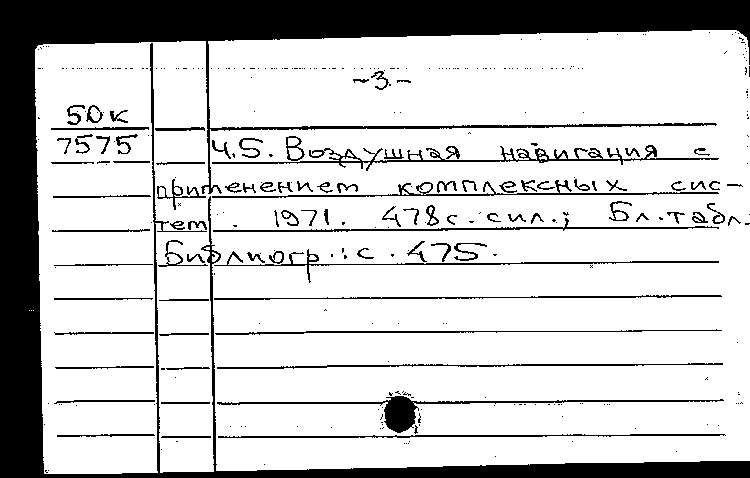 -3-
50к
7575 Ч.5. Воздушная навигация с
применением комплексных сис-
тем. 1971. 478с. с ил.; Бл. табл.
Библиогр.: с. 475.